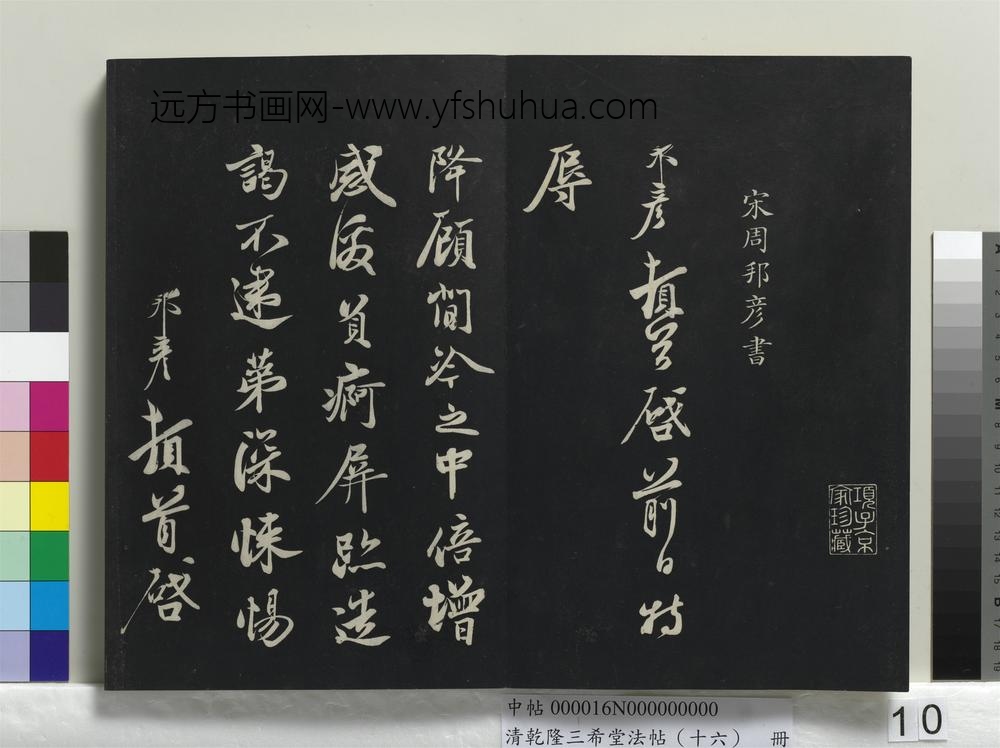 远方书画网-www.yfshuhua.com
項子京家珍藏
宋周邦彦書
邦彦頓首啓前日特
辱
降顧閒冷之中倍增
感負痾屏跡造
謁不逮第深悚惕
邦彦頓首啓
10
中帖 000016N000000000
清乾隆三希堂法帖（十六） 冊